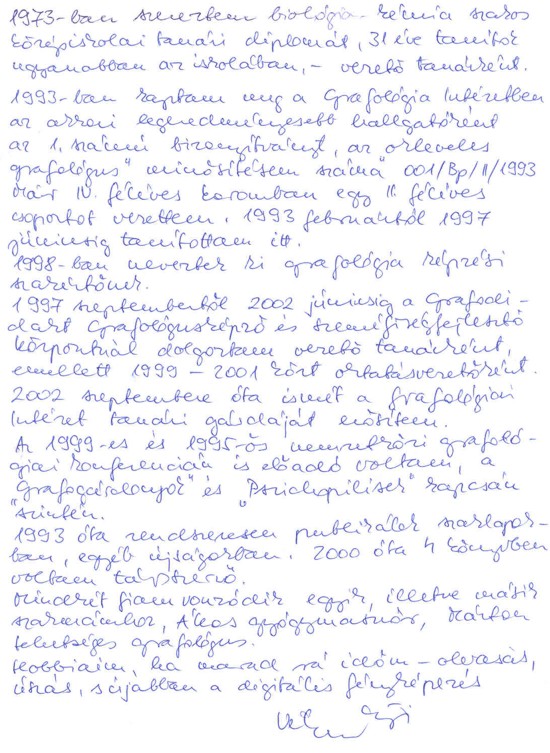 1973-ban szereztem biológia-kémia szakos
középiskolai tanári diplomát, 31 éve tanítok
ugyanabban az iskolában, - vezető tanárként.
1993-ban kaptam meg a Grafológia Intézetben
az akkori legeredményesebb hallgatóként
az 1. számú bizonyítványt, az "okleveles
grafológus" minősítésem száma 001/Bp/II/1993
Már IV. féléves koromban egy II. féléves
csoportot vezettem. 1993 februártól 1997
júniusig tanítottam itt.
1998-ban neveztek ki grafológia képzési
szakértőnek.
1997 szeptembertől 2002 júniusig a Grafodi-
dakt Grafológusképző és személyiségfejlesztő
központnál dolgoztam vezető tanárként,
emellett 1999 - 2001 közt oktatásvezetőként.
2002 szeptembere óta ismét a Grafológiai
Intézet tanári gárdáját erősítem.
Az 1999-es és 1995-ös nemzetközi grafoló-
giai konferencián is előadó voltam, a
"Grafogárdonyok" és "Pszichopiliset" kapcsán
szintén.
1993 óta rendszeresen publikálok szaklapok-
ban, egyéb újságokban. 2000 óta 4 könyvben
voltam társszerző.
Mindkét fiam vonzódik egyik, illetve másik
szakmámhoz, Ákos gyógymasszőr, Márton
tehetséges grafológus.
Hobbiaim, ha marad rá időm - olvasás,
úszás, s újabban a digitális fényképezés